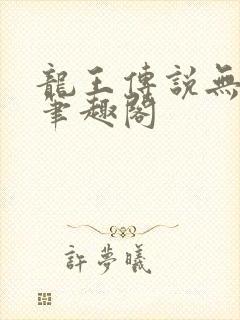 龍王傳説無
筆趣閣
許夢曦